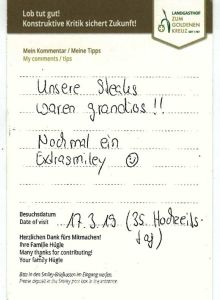 Lob tut gut!
Konstruktive Kritik sichert Zukunft!
LANDGASTHOF
ZUM
GOLDENEN
KREUZ
Mein Kommentar / Meine Tipps
My comments / tips
Unsere Steaks
waren grandios!!
Nochmal ein
Extrasmiley ☺
Besuchsdatum
Date of visit
17.3.19 (35. Hochzeits-
tag)
Herzlichen Dank fürs Mitmachen!
Ihre Familie Hügle
Many thanks for contributing!
Your family Hügle
Bitte in den Smiley-Briefkasten im Eingang werfen.
Please deposit in the Smiley post box in the entrance.